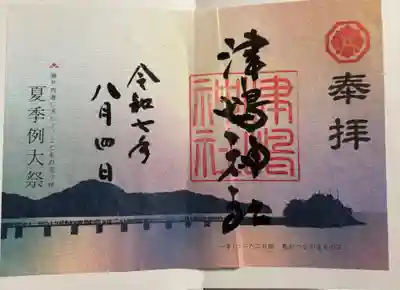 奉拝
津嶋神社
津嶋神社
令和七年
八月四日
夏季例大祭